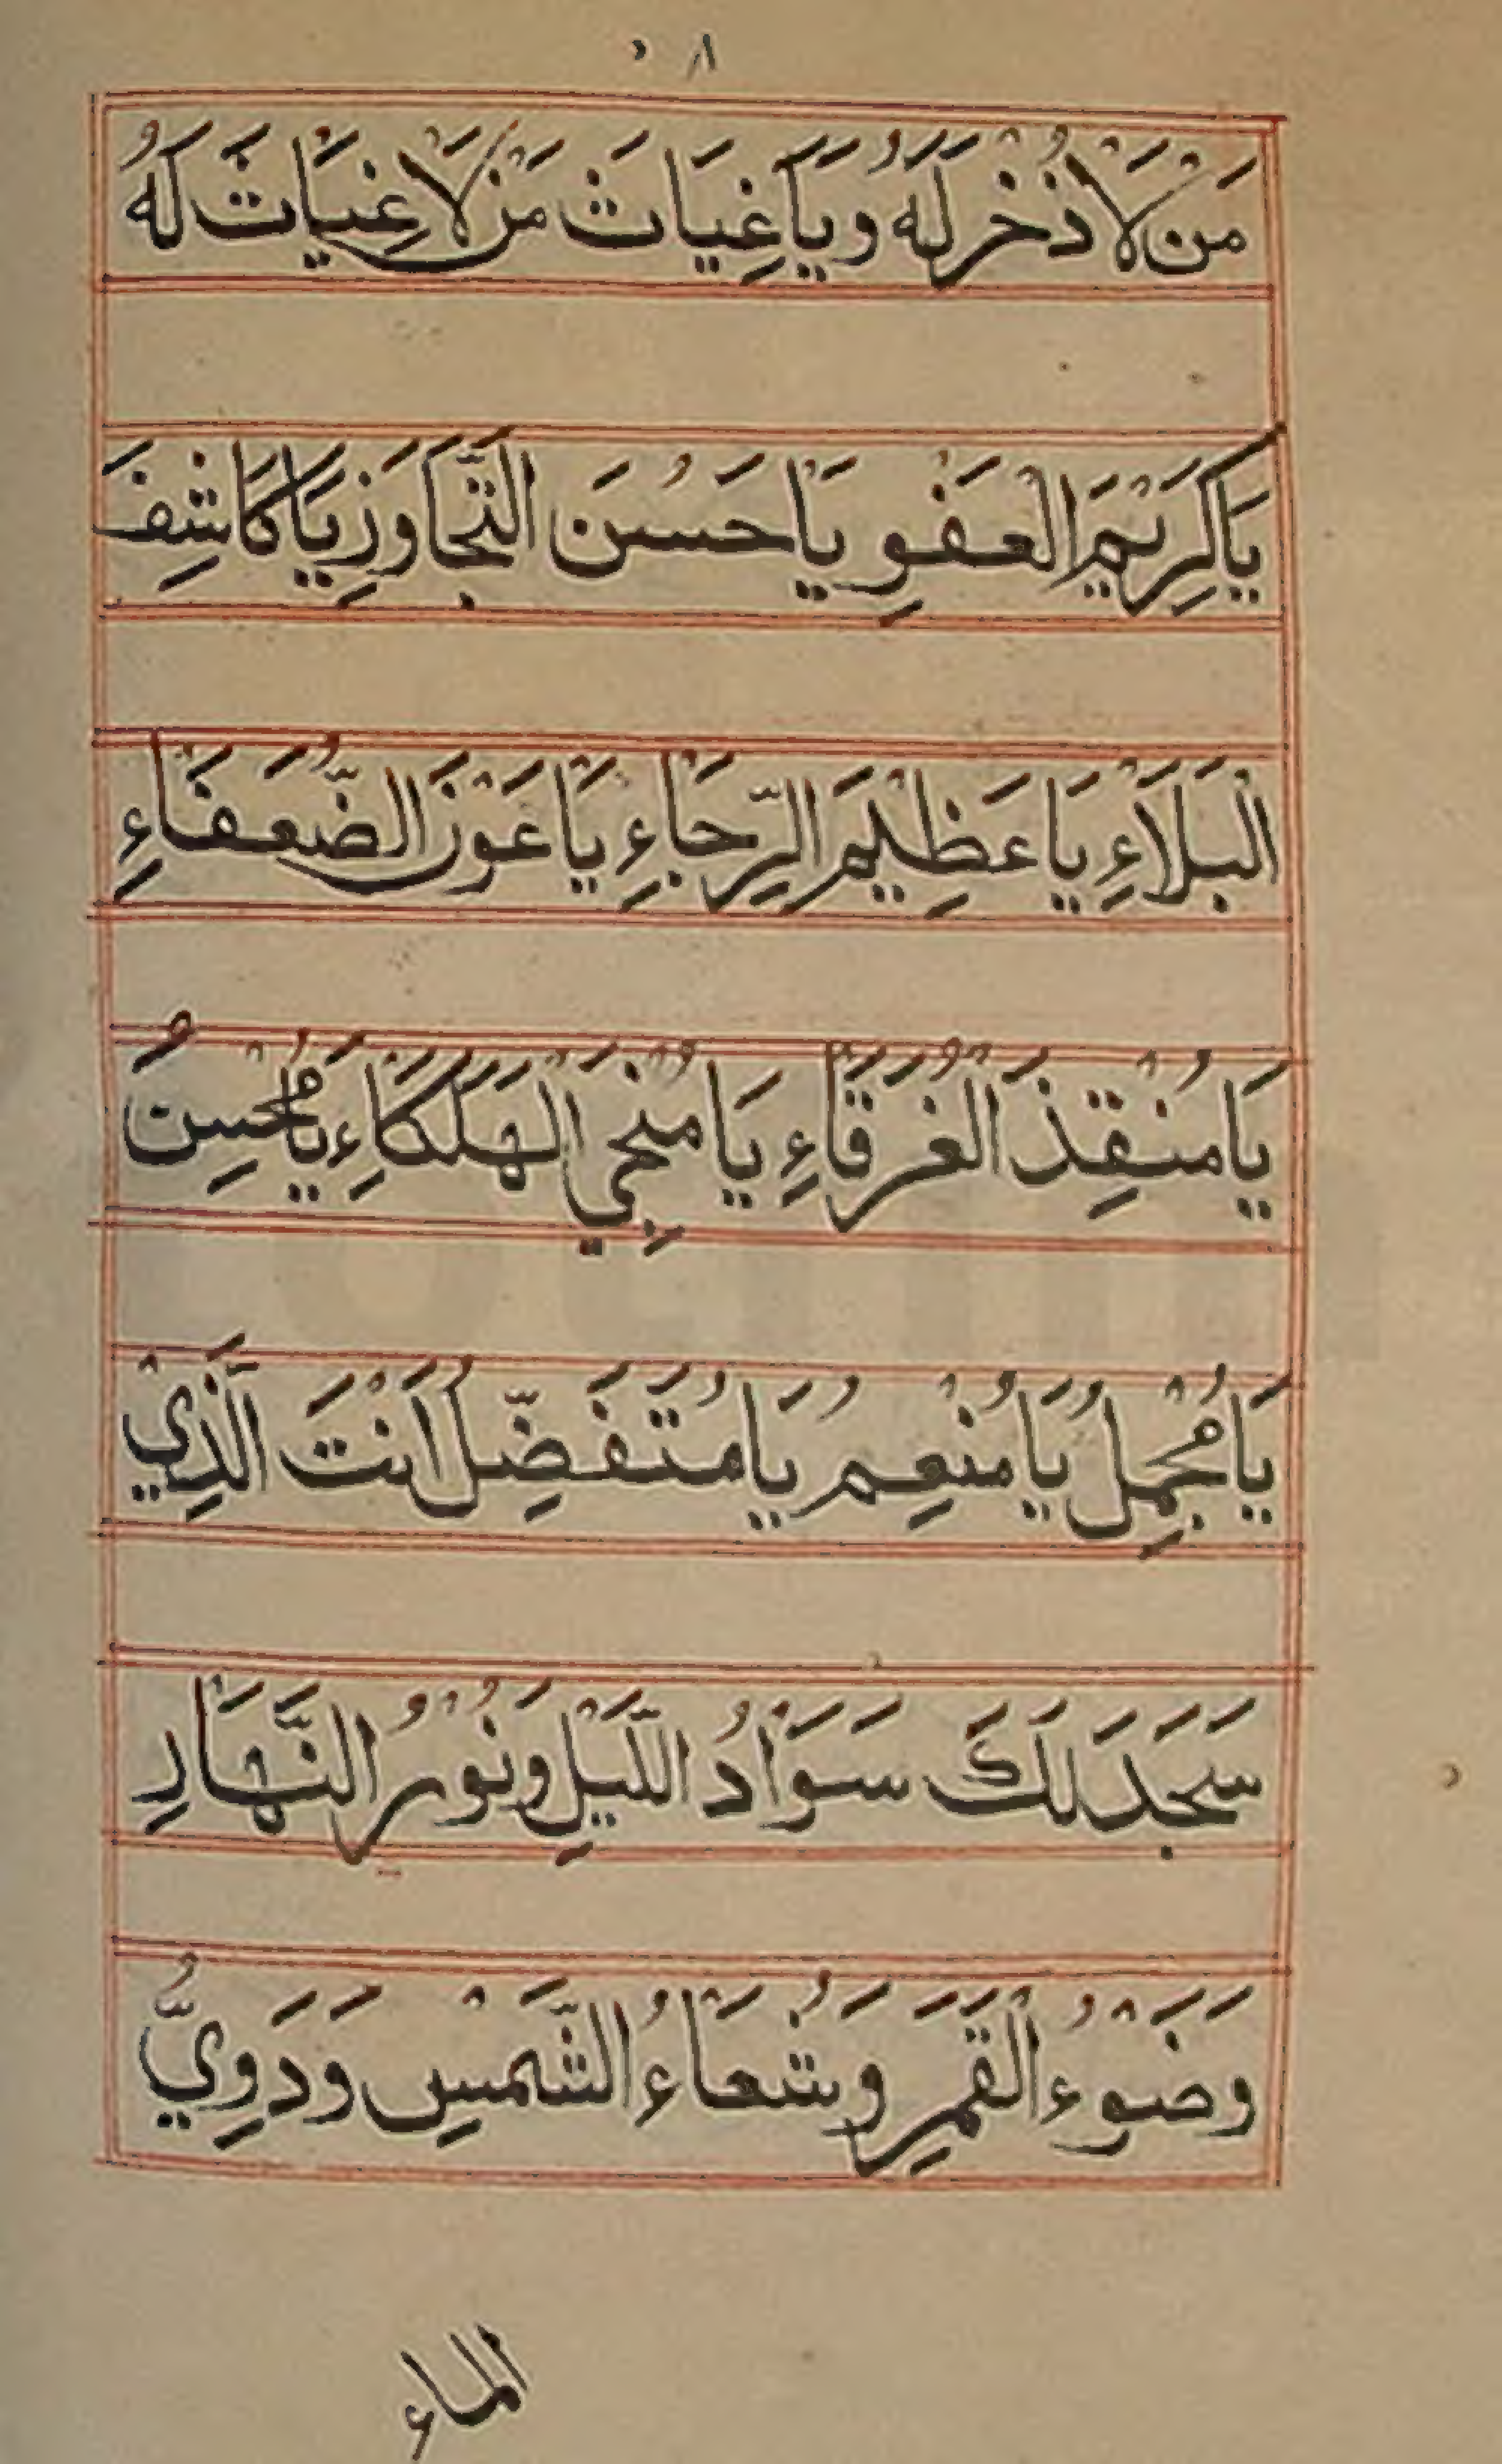 ٨
مَنْ لَا ذُخْرَ لَهُ وَيَا غِيَاثَ مَنْ لَا غِيَاثَ لَهُ
يَا كَرِيْمَ الْعَفْوِ يَا حَسَنَ التَّجَاوَزِ يَا كَاشِفَ
الْبَلَاءِ يَا عَظِيْمَ الرَّجَاءِ يَا عَوْنَ الضُّعَفَاءِ
يَا مُنْقِذَ الْغُرَقَاءِ يَا مُنْجِيَ الْهَلْكَاءِ يَا مُحْسِنُ
يَا مُجْمِلُ يَا مُنْعِمُ يَا مُتَفَضِّلُ اَنْتَ الَّذِيْ
سَجَدَ لَكَ سَوَادُ اللَّيْلِ وَنُوْرُ النَّهَارِ
وَضَوْءُ الْقَمَرِ وَشُعَاءُ الشَّمْسِ وَدَوِيُّ
الماء